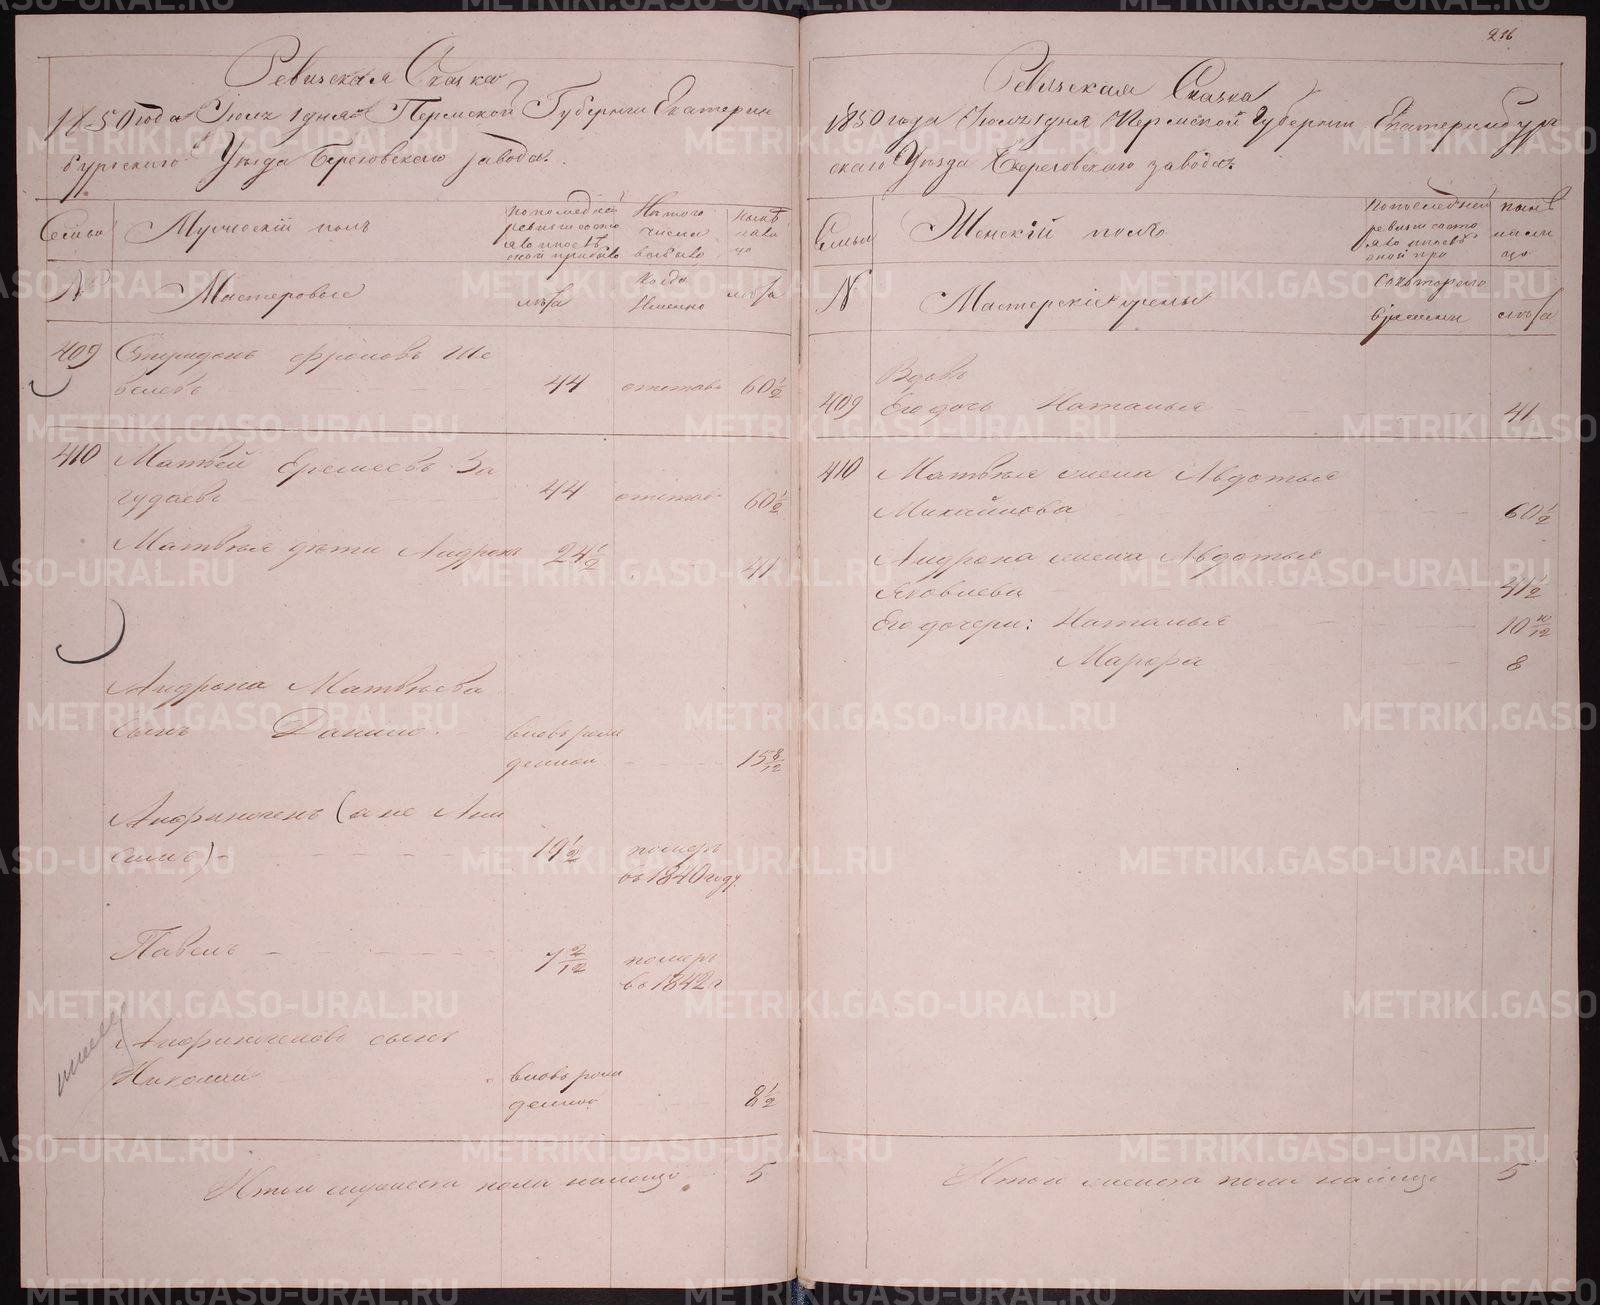 Ревизская Сказка
1850 года Июля 1 дня Пермской Губернии Екатерин
бургского Уезда Березовского завода.
Семьи
Мужеский полъ
по последней
ревизии состо
яло и после
оной прибыло
Из того
числа
выбыло
ныне
нали
цо
№
Мастеровые
лѣта
Когда
Именно
лѣта
409
Спиридонъ Фроловъ Ше
болевъ
44
отстав
60 1/2
410
Матвей Еремеевъ За
гудаевъ
44
отстав
60 1/2
Матвѣя дѣти Андронъ
24 1/2
41
Андрона Матвѣева
сынъ Данило
вновь рож
денной
15 8/12
Афиногенъ (а не Ани
симъ)
19 1/2
померъ
въ 1840 году
Павелъ
7 2/12
померъ
въ 1842 г
Афиногеновъ сынъ
Николай
вновь рож
денной
8 1/2
Итого мужеска пола налицо
5
216
Ревизская Сказка
1850 года Июля 1 дня Пермской Губернии Екатеринбург
скаго Уезда Березовского завода.
Семьи
Женскій полъ
По последней
ревизии состо
яло и после
оной при
ныне
нали
цо
N
Мастерскіе жены
Съ котораго
времени
лѣта
Вдовъ
409
Его дочь Наталья
41
410
Матвѣя жена Авдотья
Михайлова
60 1/2
Андрона жена Авдотья
Яковлева
41 1/2
Его дочери: Наталья
10 10/12
Марфа
8
Итого женска пола налицо
5
METRIKI.GASO-URAL.RU